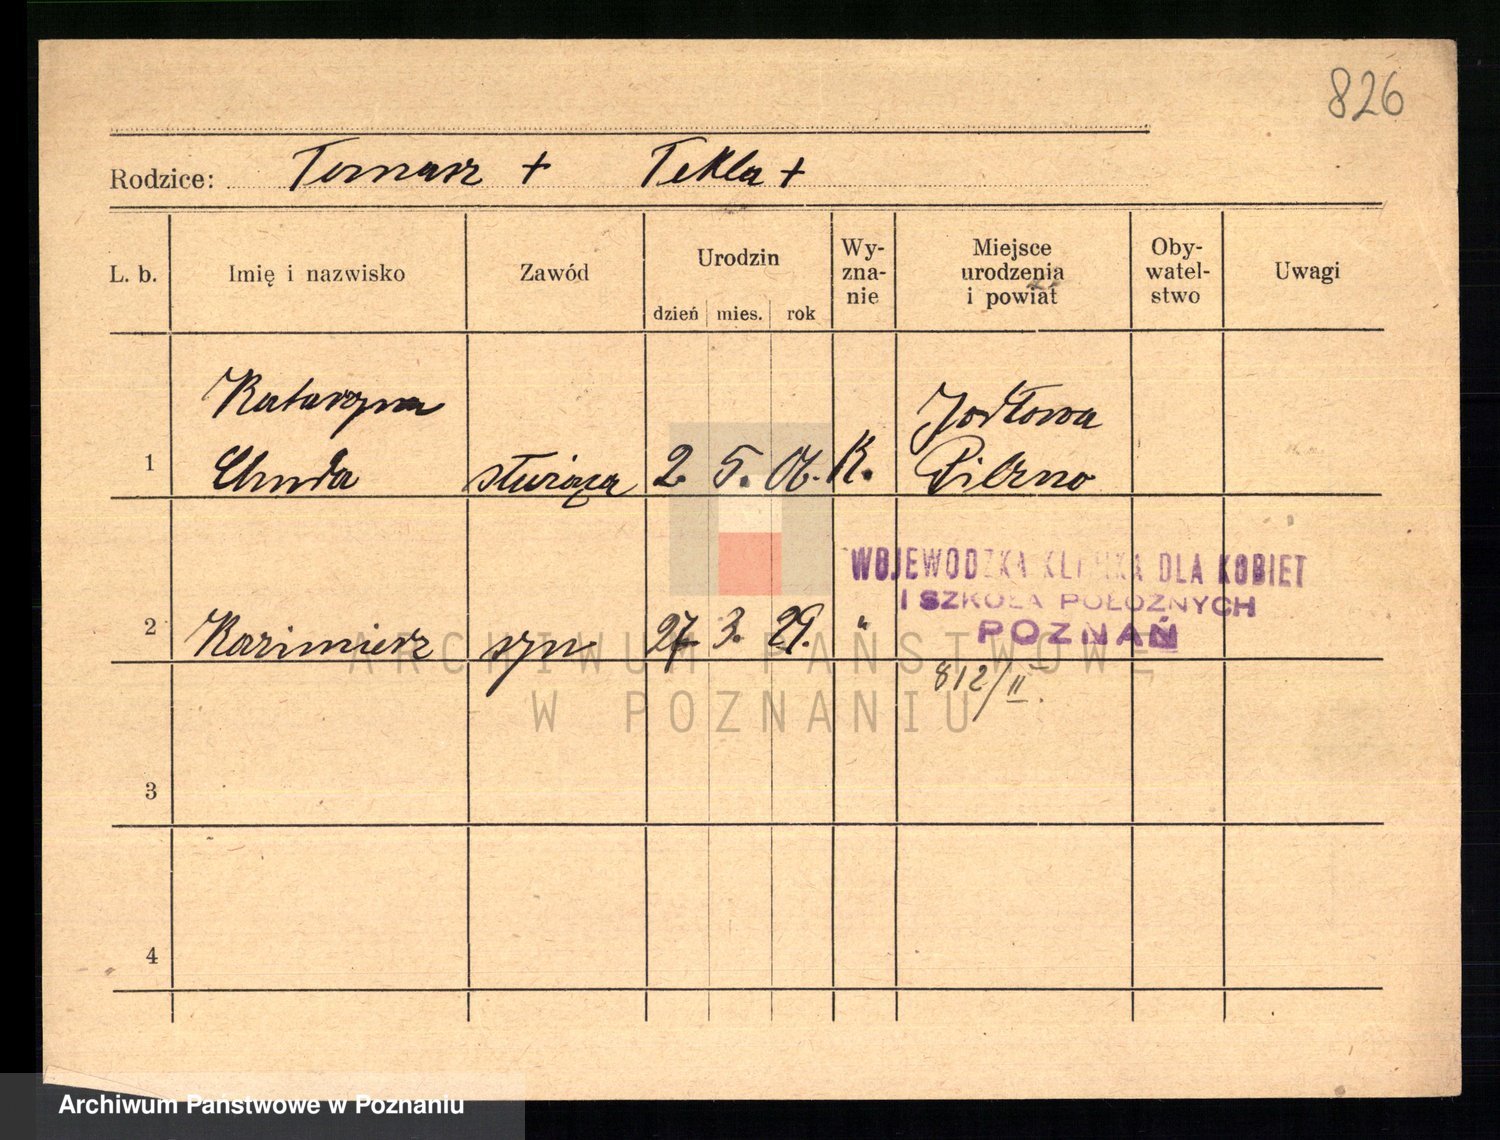 826
Rodzice: Tomasz + Tekla +
L. b. Imię i nazwisko Zawód Urodzin dzień mies. rok Wy-zna-nie Miejsce urodzenia i powiat Oby-watel-stwo Uwagi
Katarzyna Jodłowa
1 Chuda służąca 2. 5. 06. K. Pilzno
WOJEWÓDZKA KLINIKA DLA KOBIET
I SZKOŁA POŁOŻNYCH
2 Kazimierz syn 27. 3. 29. " POZNAŃ
ARCHIWUM PAŃSTWOWE
812/II.
W POZNANIU
3
4
Archiwum Państwowe w Poznaniu